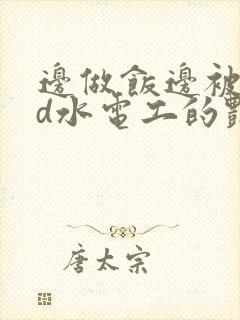 邊做飯邊被
d水電工的
唐太宗